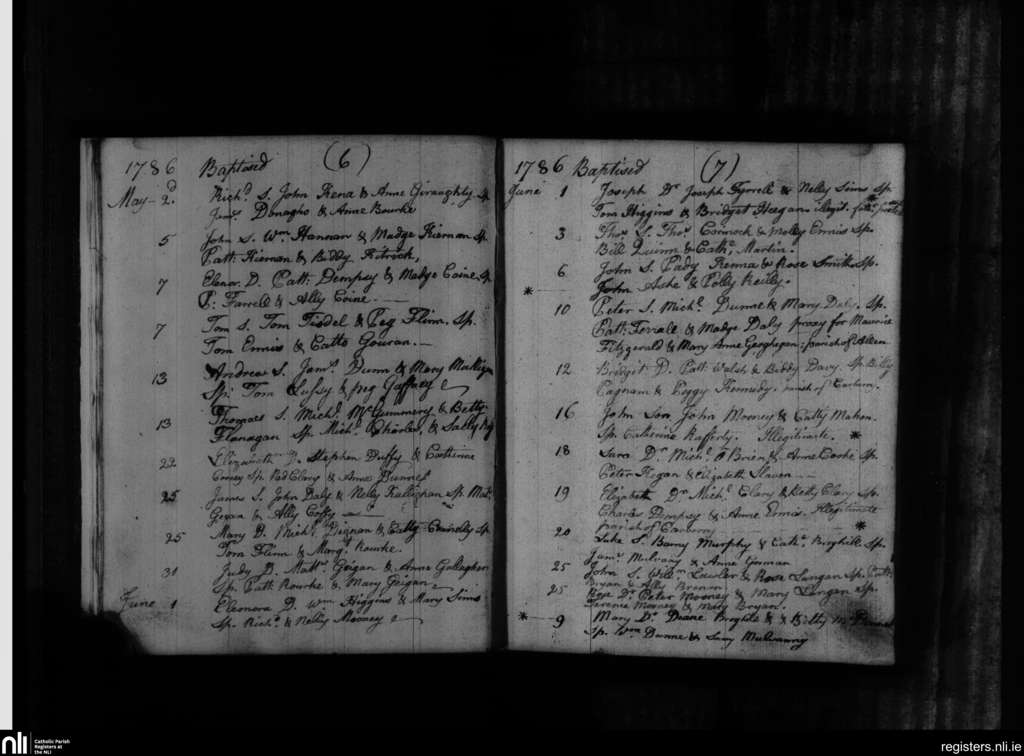 1786 Baptised (6)
May - 2d Richd. S. John Kena & Anne Geraughty Sp
Jams. Donagho & Anne Bourke
5 John S. Wm. Hannan & Madge Kiernan Sp.
Patt. Kiernan & Biddy Fitrick,
7 Elenor D. Patt: Dempsey & Madge Coine Sp
P: Farrell & Ally Coine.
7 Tom S. Tom Tisdel & Peg Flinn. Sp.
Tom Ennis & Catte Gouran.
13 Andrew S. Jams. Dunn & Mary
Sp: Tom & peg Gaffney
13 Thomas S. Michl. McGummery & Betty
Flanagan Sp. Michl. Charles, & Sally
22 Elizabeth D. Stephen Duffy & Catherine
Sp. Clary & Anne
25 James S. John Daly & Nelly Sp.
& Ally Coffy
25 Mary D. Michl. Dignan & Catty Sp
Tom Flinn & Margt. Rourke.
31 Judy D. Matt. Geigan & Anne Gallagher
Sp. Patt. Rourke & Mary Geigan
June 1 Eleonora D. Wm. Higgins & Mary Sims
Sp. Richd. & Nelly Mooney
1786 Baptised (7)
June 1 Joseph Dr Joseph Tyrrell & Nelly Sims Sp
Tom Higgins & Bridget Heegan illegit.
3 Thos. S. Thos. Cormock & Molly Ennis Sp
Bill Quinn & Cathe. Martin.
6 John S. Pady Kenna & Rose Smith Sp.
* John Ashe & Polly Reilly.
10 Peter S. Michl. Dunne & Mary Daly. Sp.
Patt: Ferrall & Madge Daly proxy for Maurice
Fitzgerald & Mary Anne Geoghegan: parish of
12 Bridgit D. Patt Walsh & Biddy Davy Sp. Billy
Pagnam & Peggy Kennedy. parish of
16 John Son John Mooney & Catty Mahon.
Sp. Catherine Rafferty. Illegitimate. *
18 Sara Dr. Michl. O Brien & Anne Cooke Sp
Peter Hogan & Elizabeth Slaven
19 Elizabeth Dr Michl. Clary & Betty Clary Sp.
Charles Dempsey & Anne Ennis. Illegitimate
parish of *
20 Luke S. Barny Murphy & Cathe. Sp.
Jams. Mulvany & Anne Gorman
25 John S. Willm. Lawler & Rose Langan Sp.
Bryan & Ally Brenan
25 Rose Dr. Peter Mooney & Mary Langan Sp.
Terence Mooney & Mary Bryan.
* 9 Mary Dr. & Betty
Sp. Wm Dunne & Mulvanny
nli
Catholic Parish
Registers at
the NLI
registers.nli.ie